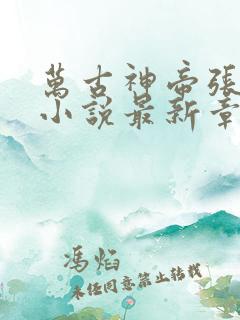 萬古神帝張
小說最新章
馮焰
未经同意禁止转载